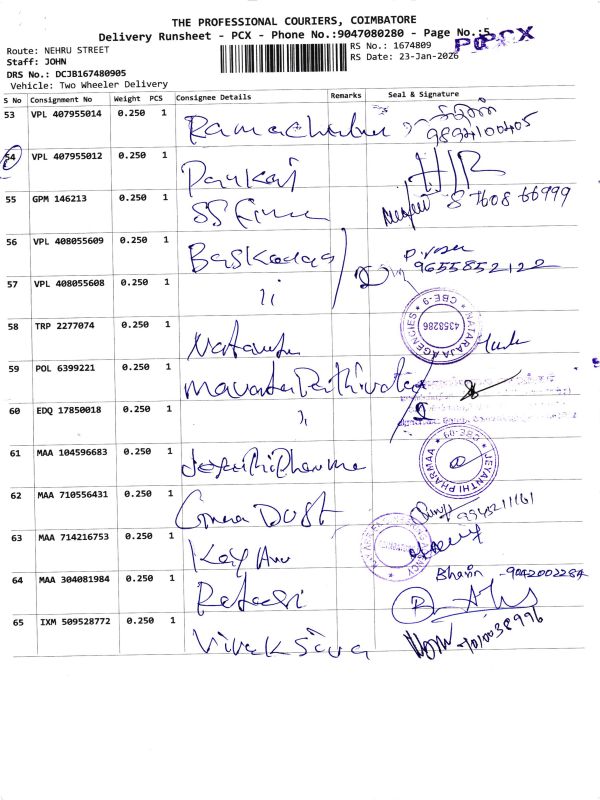 THE PROFESSIONAL COURIERS, COIMBATORE
Delivery Runsheet - PCX - Phone No.:9047080280 - Page No.:5
PCX
Route: NEHRU STREET
RS No.: 1674809
Staff: JOHN
RS Date: 23-Jan-2026
DRS No.: DCJB167480905
Vehicle: Two Wheeler Delivery
S No Consignment No Weight PCS Consignee Details Remarks Seal & Signature
53 VPL 407955014 0.250 1
9894100405
54 VPL 407955012 0.250 1 Pankaj
55 GPM 146213 0.250 1 SS
87608 66999
56 VPL 408055609 0.250 1 Baskaran
9655852122
57 VPL 408055608 0.250 1 ii
NATARAJA AGENCIES CBE-9 4355286
58 TRP 2277074 0.250 1
59 POL 6399221 0.250 1
60 EDQ 17850018 0.250 1 ii
61 MAA 104596683 0.250 1 Jeyanthi Pharma
JEYANTHI PHARMAA CBE-09
62 MAA 710556431 0.250 1 DUST
9943211161
63 MAA 714216753 0.250 1 Kay
AGENCY
64 MAA 304081984 0.250 1
Bhavin - 9042002284
65 IXM 509528772 0.250 1 Vivek Siva
7010038996